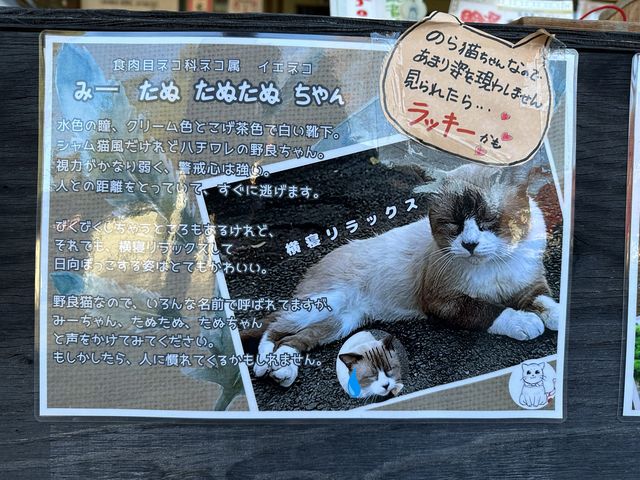 食肉目ネコ科ネコ属　イエネコ
みー　たぬ　たぬたぬ　ちゃん
のら猫ちゃんなので、
あまり姿を現わしません
見られたら…
ラッキーかも
水色の瞳、クリーム色とこげ茶色で白い靴下。
シャム猫風だけれどハチワレの野良ちゃん。
視力がかなり弱く、警戒心は強い。
人との距離をとっていて、すぐに逃げます。
びくびくしちゃうところもあるけれど、
それでも、横寝リラックスして
日向ぼっこする姿はとてもかわいい。
横寝リラックス
野良猫なので、いろんな名前で呼ばれてますが、
みーちゃん、たぬたぬ、たぬちゃん
と声をかけてみてください。
もしかしたら、人に慣れてくるかもしれません。